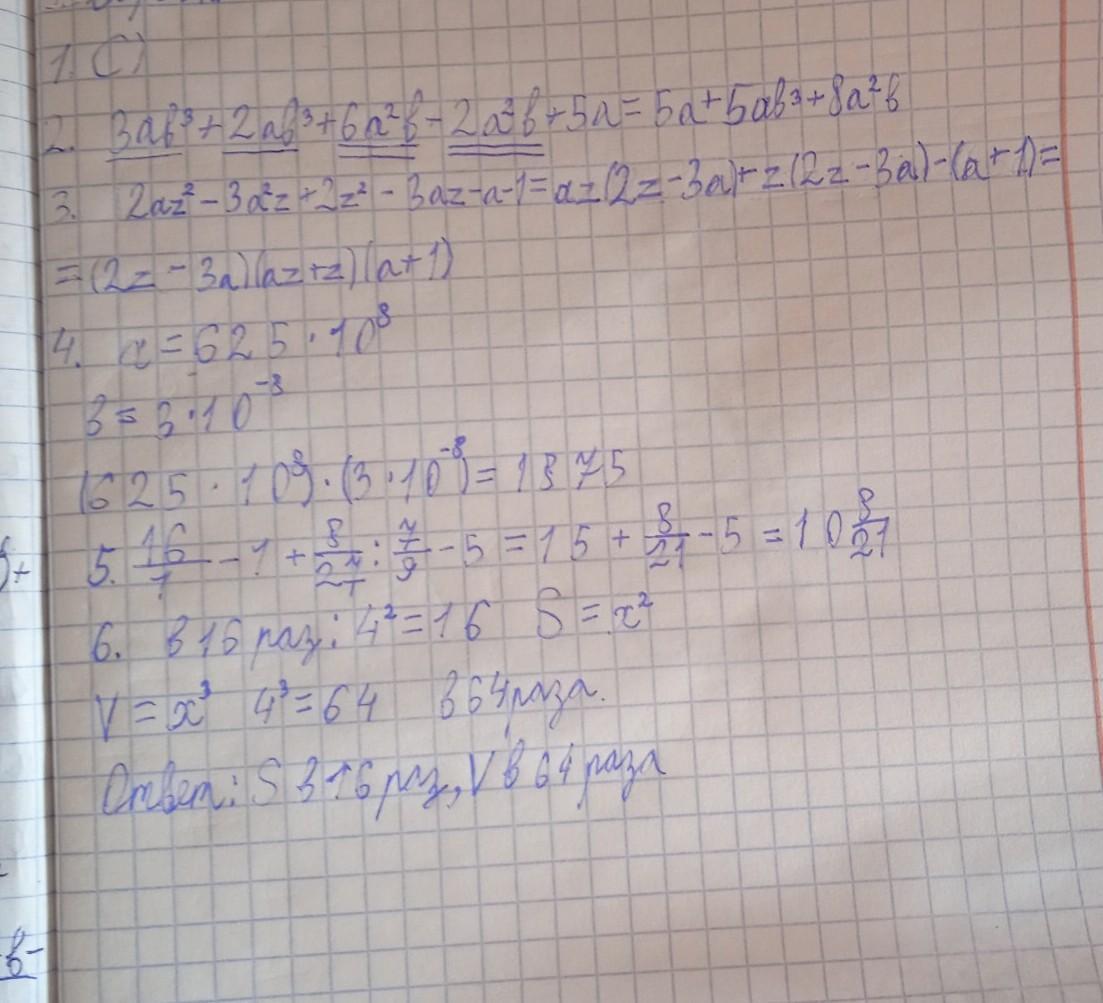 1. C)
2. 3ab³ + 2ab³ + 6a²b - 2a²b + 5a = 5a + 5ab³ + 8a²b
3. 2az² - 3a²z + 2z² - 3az - a - 1 = az(2z - 3a) + z(2z - 3a) - (a + 1) =
= (2z - 3a)(az + z)(a + 1)
4. a = 625 · 10⁸
в = 3 · 10⁻⁸
(625 · 10⁸) · (3 · 10⁻⁸) = 1875
5. 16/1 - 1 + 8/27 : 7/9 - 5 = 15 + 8/21 - 5 = 10 8/21
6. В 16 раз: 4² = 16 S = x²
V = x³ 4³ = 64 в 64 раза.
Ответ: S в 16 раз, V в 64 раза
в-